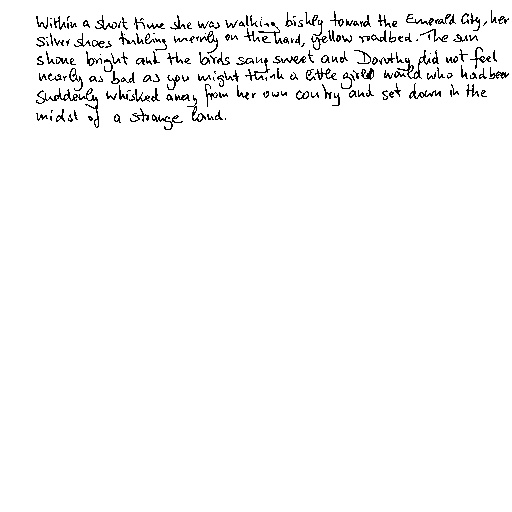 Within a short time she was walking biskly toward the Emerald City, her
Silver Shoes tinkling merrily on the hard, yellow roadbed. The sun
shone bright and the birds sang sweet and Dorothy did not feel
nearly as bad as you might think a little girl would who had been
suddenly whisked away from her own country and set down in the
midst of a strange land.